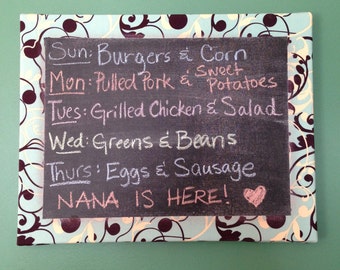 Sun: Burgers & Corn
Mon: Pulled Pork & Sweet Potatoes
Tues: Grilled Chicken & Salad
Wed: Greens & Beans
Thurs: Eggs & Sausage
NANA IS HERE!